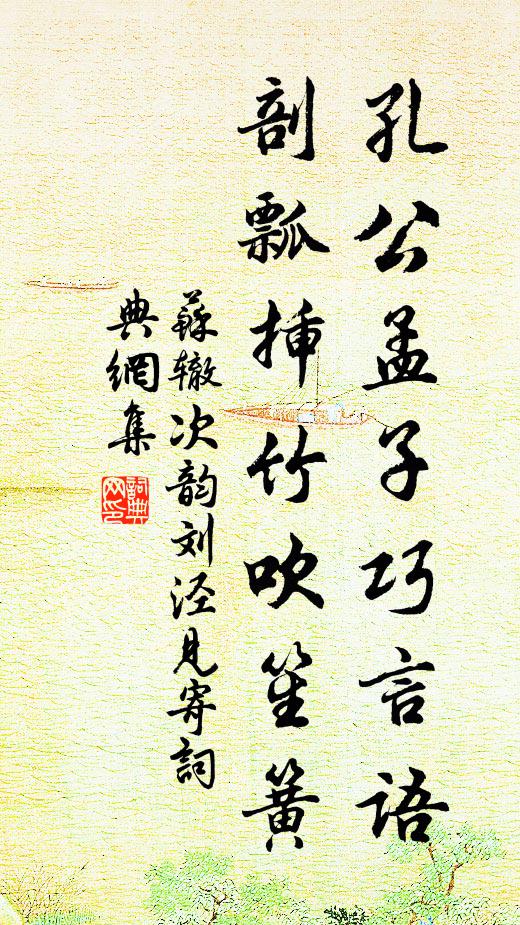 孔公孟子巧言語
剖瓢插竹吹笙簧
蘇辙次韵刘泾見寄詞
典網集
詞典
网印